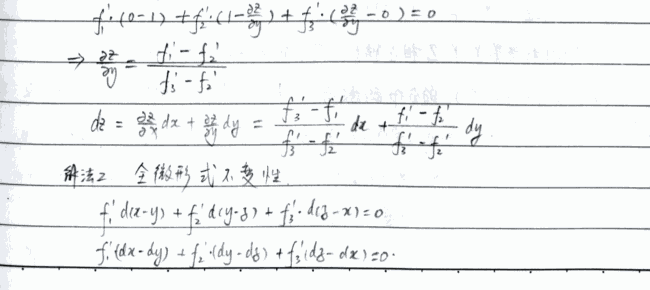 f₁'·(0-1) + f₂'·(1-∂z/∂y) + f₃'·(∂z/∂y-0) = 0
⇒ ∂z/∂y = (f₁'-f₂')/(f₃'-f₂')
dz = ∂z/∂x dx + ∂z/∂y dy = (f₃'-f₁')/(f₃'-f₂') dx + (f₁'-f₂')/(f₃'-f₂') dy
解法2 全微形式不变性
f₁'d(x-y) + f₂'d(y-z) + f₃'·d(z-x) = 0
f₁'(dx-dy) + f₂'·(dy-dz) + f₃'(dz-dx) = 0.